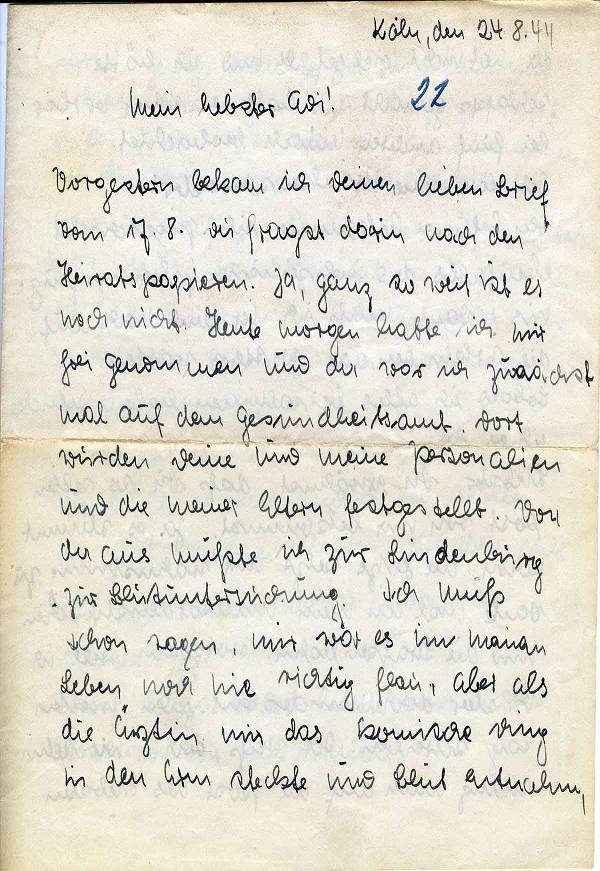 Köln, den 24.8.44
22
Mein liebster Adi!
Vorgestern bekam ich deinen lieben Brief
vom 17.8. du fragst darin nach den
Heiratspapieren. Ja, ganz so weit ist es
noch nicht. Heute morgen hatte ich mir
frei genommen und da war ich zunächst
mal auf dem Gesundheitsamt. dort
wurden deine und meine Personalien
und die meiner Eltern festgestellt. Von
da aus mußte ich zur Lindenburg
zur Blutuntersuchung. Ich muß
schon sagen, mir war es im meinem
Leben noch nie richtig flau, aber als
die Ärztin mir das komische Ding
in den Arm steckte und Blut entnahm,